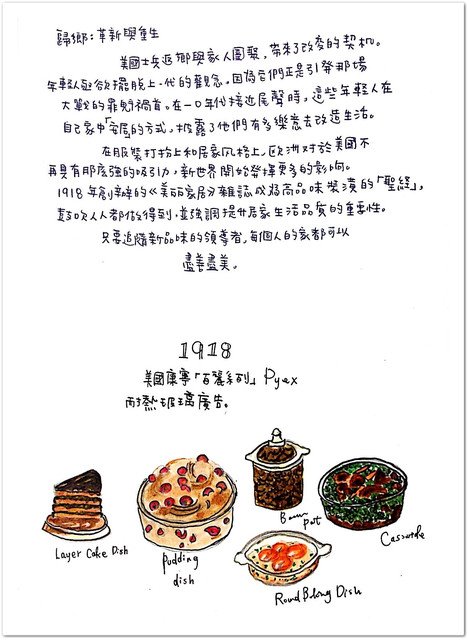 歸鄉：革新與重生
美國士兵返鄉與家人團聚，帶來了改變的契机。
年輕人亟欲擺脫上一代的觀念，因為它們正是引發那場
大戰的罪魁禍首。在一〇年代接近尾聲時，這些年輕人在
自己家中「安居」的方式，披露了他們有多樂意去改造生活。
在服裝打扮上和居家風格上，歐洲對於美國不
再具有那麼強的吸引力，新世界開始發揮更多的影响。
1918年創辦的《美麗家居》雜誌成為高品味裝潢的「聖經」，
鼓吹人人都做得到，並強調提升居家生活品質的重要性。
只要追隨新品味的領導者，每個人的家都可以
盡善盡美。
1918
美國康寧「百麗系列」Pyex
耐熱玻璃廣告。
Layer Cake Dish
Pudding
dish
Bean
Pot
Casserole
Dish